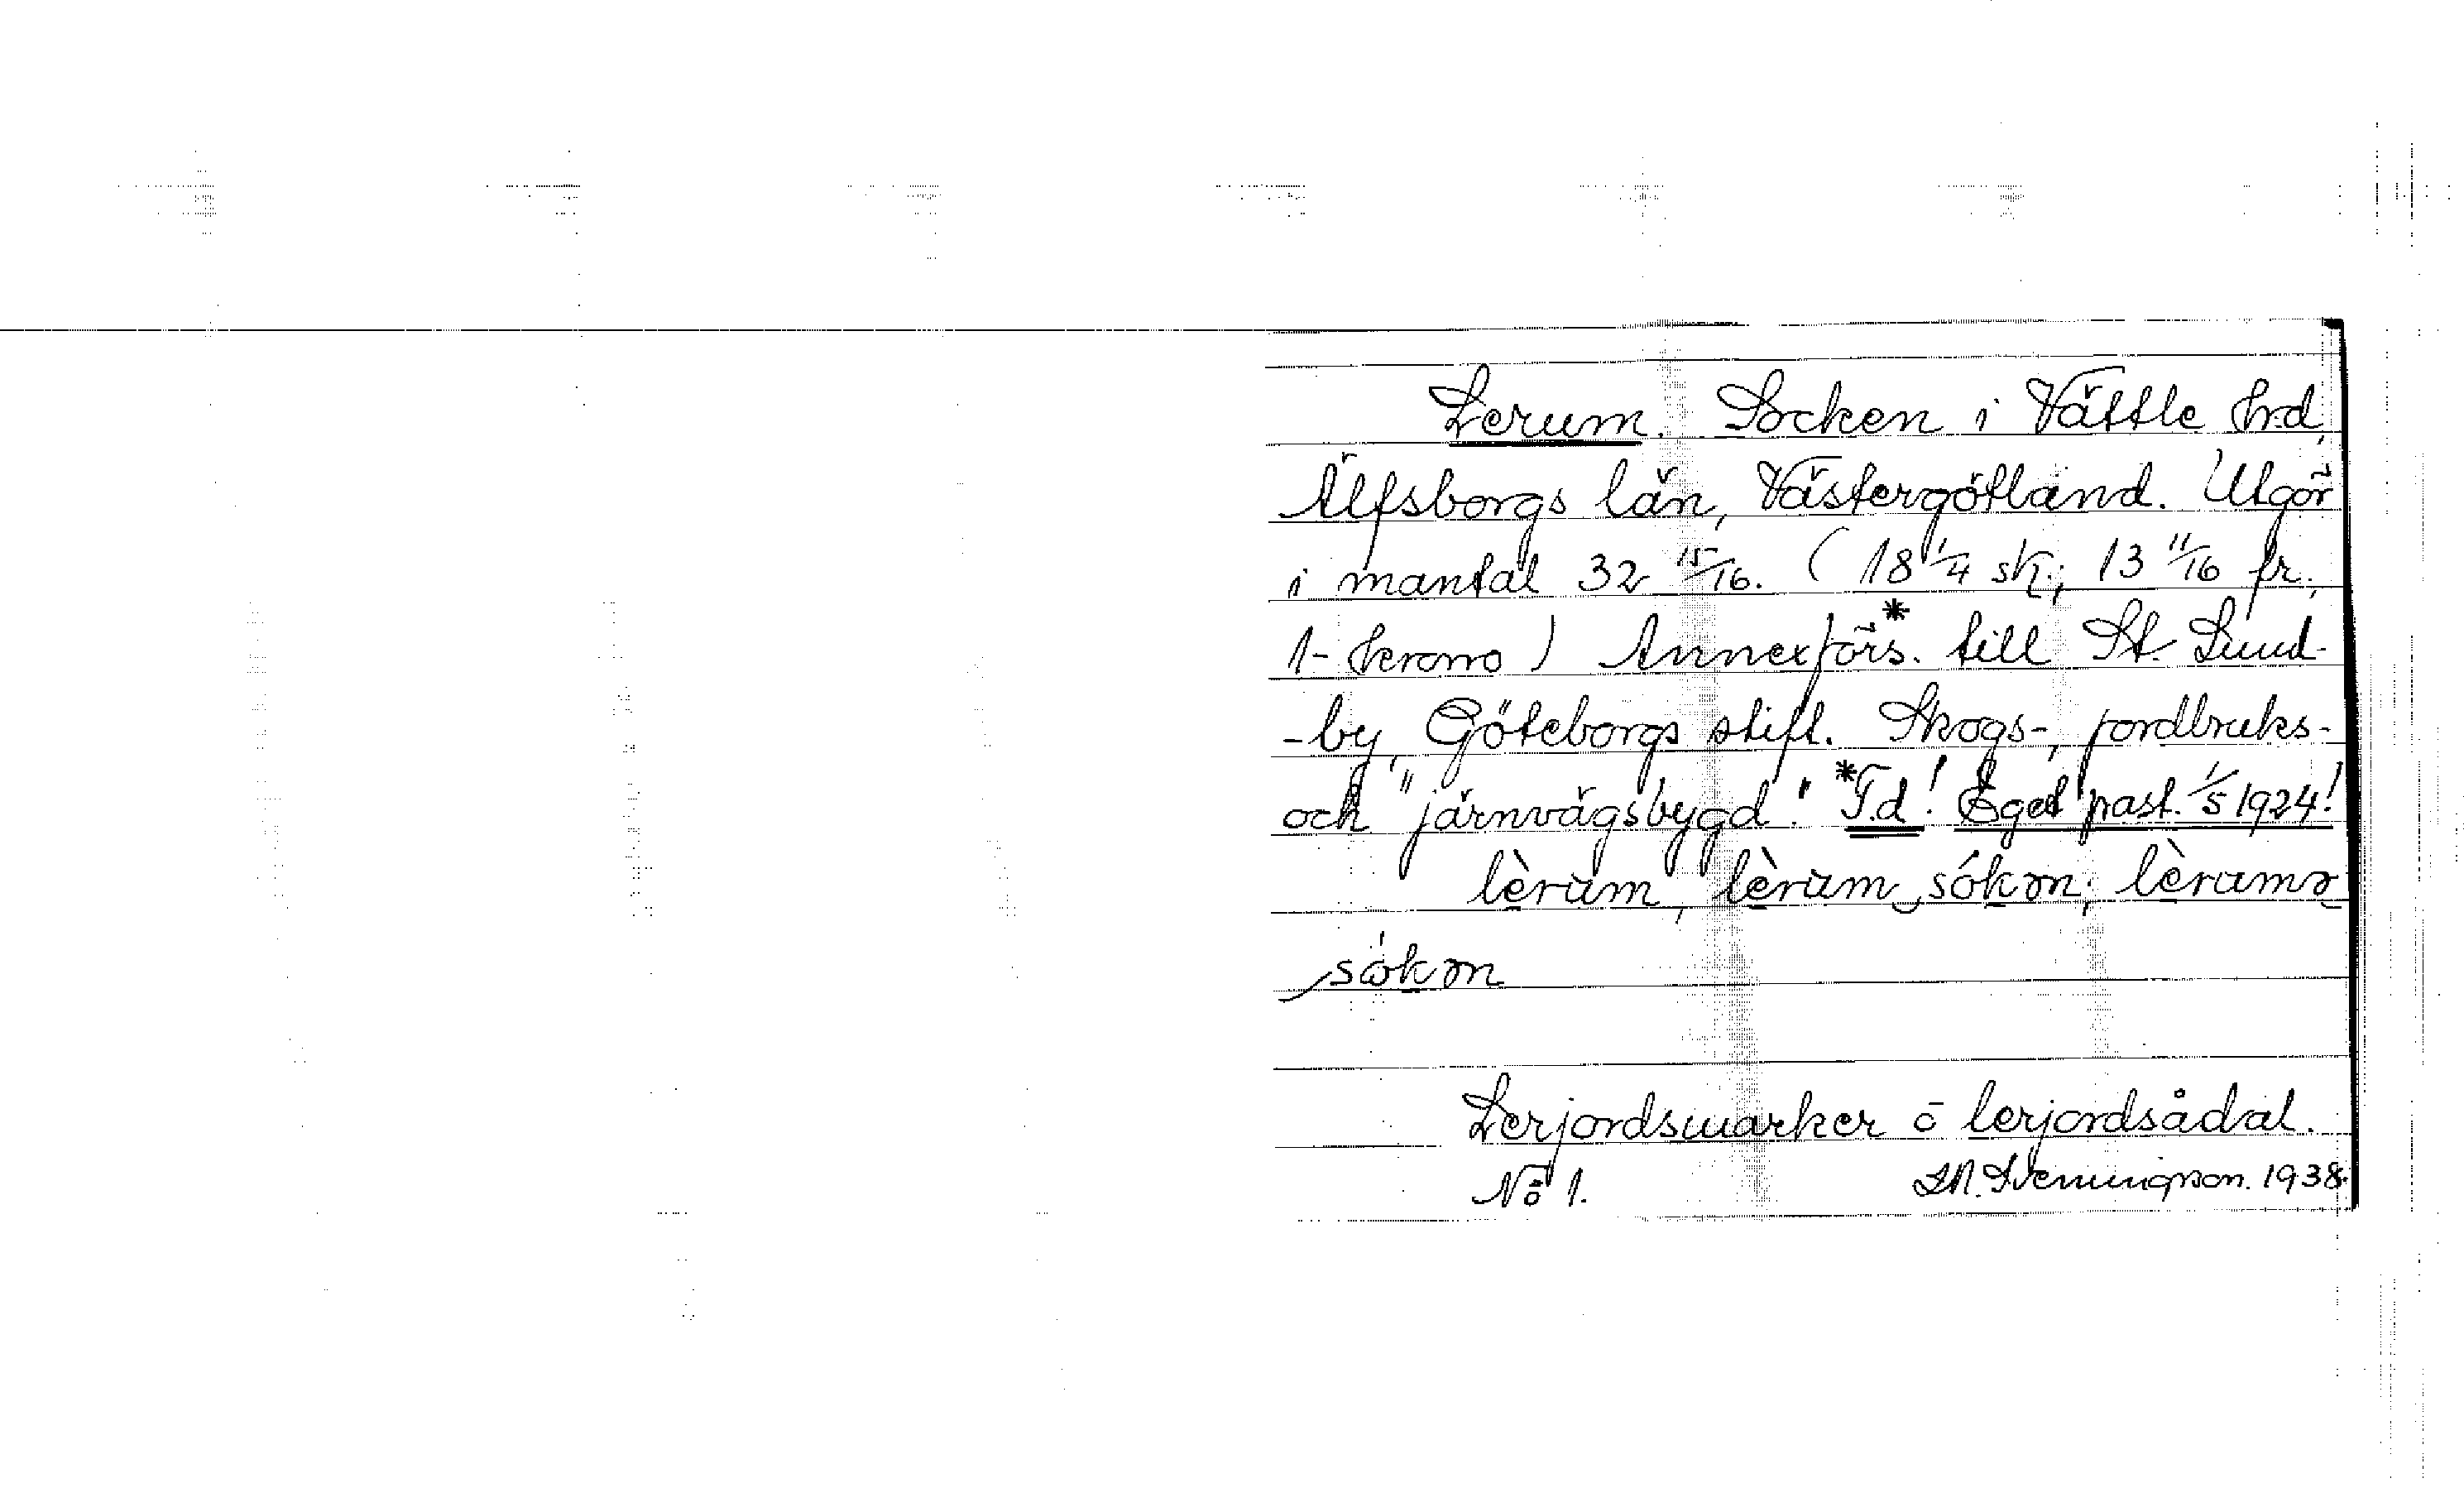 Lerum. Socken i Vättle hrd,
Älfsborgs län, Västergötland. Utgör
i mantal 32 15/16. (18 1/4 sk; 13 11/16 fr;
1- krono) Annexförs.* till St. Lund-
-by, Göteborgs stift. Skogs-, jordbruks-
och "järnvägsbygd". *F.d! Eget past. 1/5 1924!
lèrùm, lèrùm sókən; lèrumə
sókən
Lerjordsmarker o lerjordsådal.
No 1. 1938.